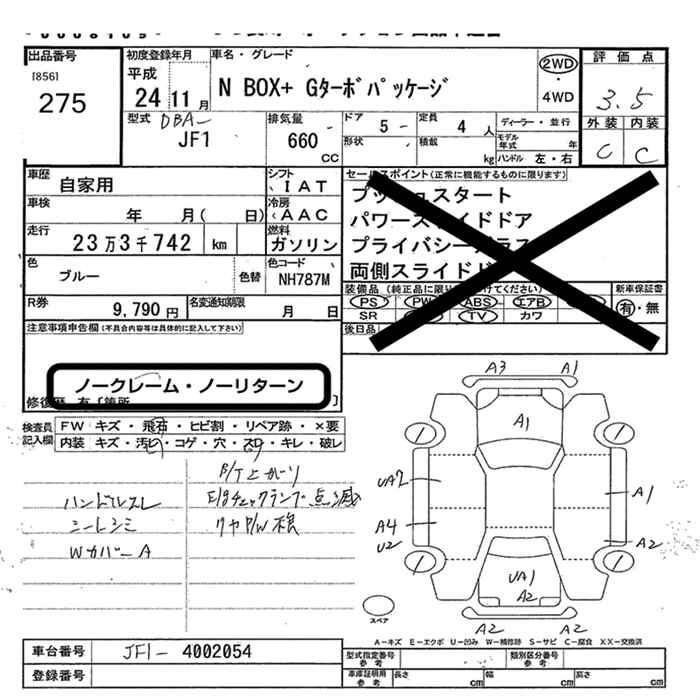 出品番号
[856]
275
初度登録年月
平成
24 11月
車名・グレード
N BOX+ Gターボパッケージ
2WD
・
4WD
評価点
3.5
外装 内装
C C
型式 DBA-
JF1
排気量
660
CC
ドア 5 -
定員 4 人
形状
積載
kg
ディーラー・並行
モデル年式 年
ハンドル 左・右
車歴
自家用
シフト
IAT
車検
年 月( 日)
冷房
AAC
走行
23万3千742 km
燃料
ガソリン
色
ブルー
色替
色コード
NH787M
R券
9,790円
名変通知期限
月 日
セールスポイント(正常に機能するものに限ります)
プッシュスタート
パワースライドドア
プライバシーガラス
両側スライドド
装備品
新車保証書
PS PW ABS エアB
有・無
SR TV カワ
後日品
注意事項申告欄(不具合内容等は具体的に記入して下さい)
ノークレーム・ノーリターン
修復歴 有[箇所 ]
検査員記入欄
FW キズ・飛石・ヒビ割・リペア跡・×要
内装 キズ・汚レ・コゲ・穴・スレ・キレ・破レ
ハンドルスレ
シートシミ
Wカバー A
E/gチェックランプ点滅
A3 A1
A1
UA2
A4
U2
A1
A2
UA1
A2
A2 A2
スペア
A－キズ E－エクボ U－凹み W－補修跡 S－サビ C－腐食 XX－交換済
車台番号
JF1- 4002054
登録番号
型式指定番号
参考
類別区分番号
参考
車庫証明用
参考
長さ cm
幅 cm
高さ cm